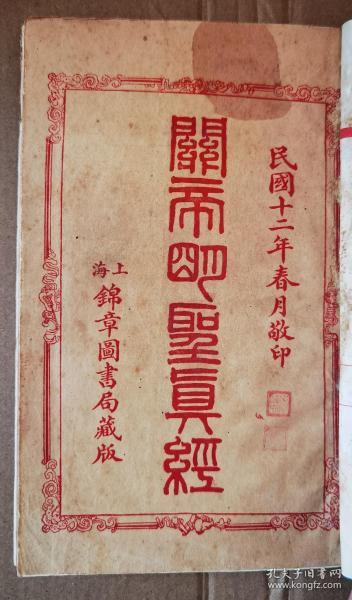 民國十二年春月敬印
關帝明聖眞經
上海
錦章圖書局藏版
孔夫子旧书网
www.kongfz.com